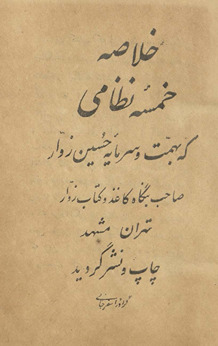 خلاصهٔ
خمسهٔ نظامی
که بهمت و سرمایه حسین زوّار
صاحب بنگاه کاغذ و کتاب زوّار
تهران مشهد
چاپ و نشر گردید